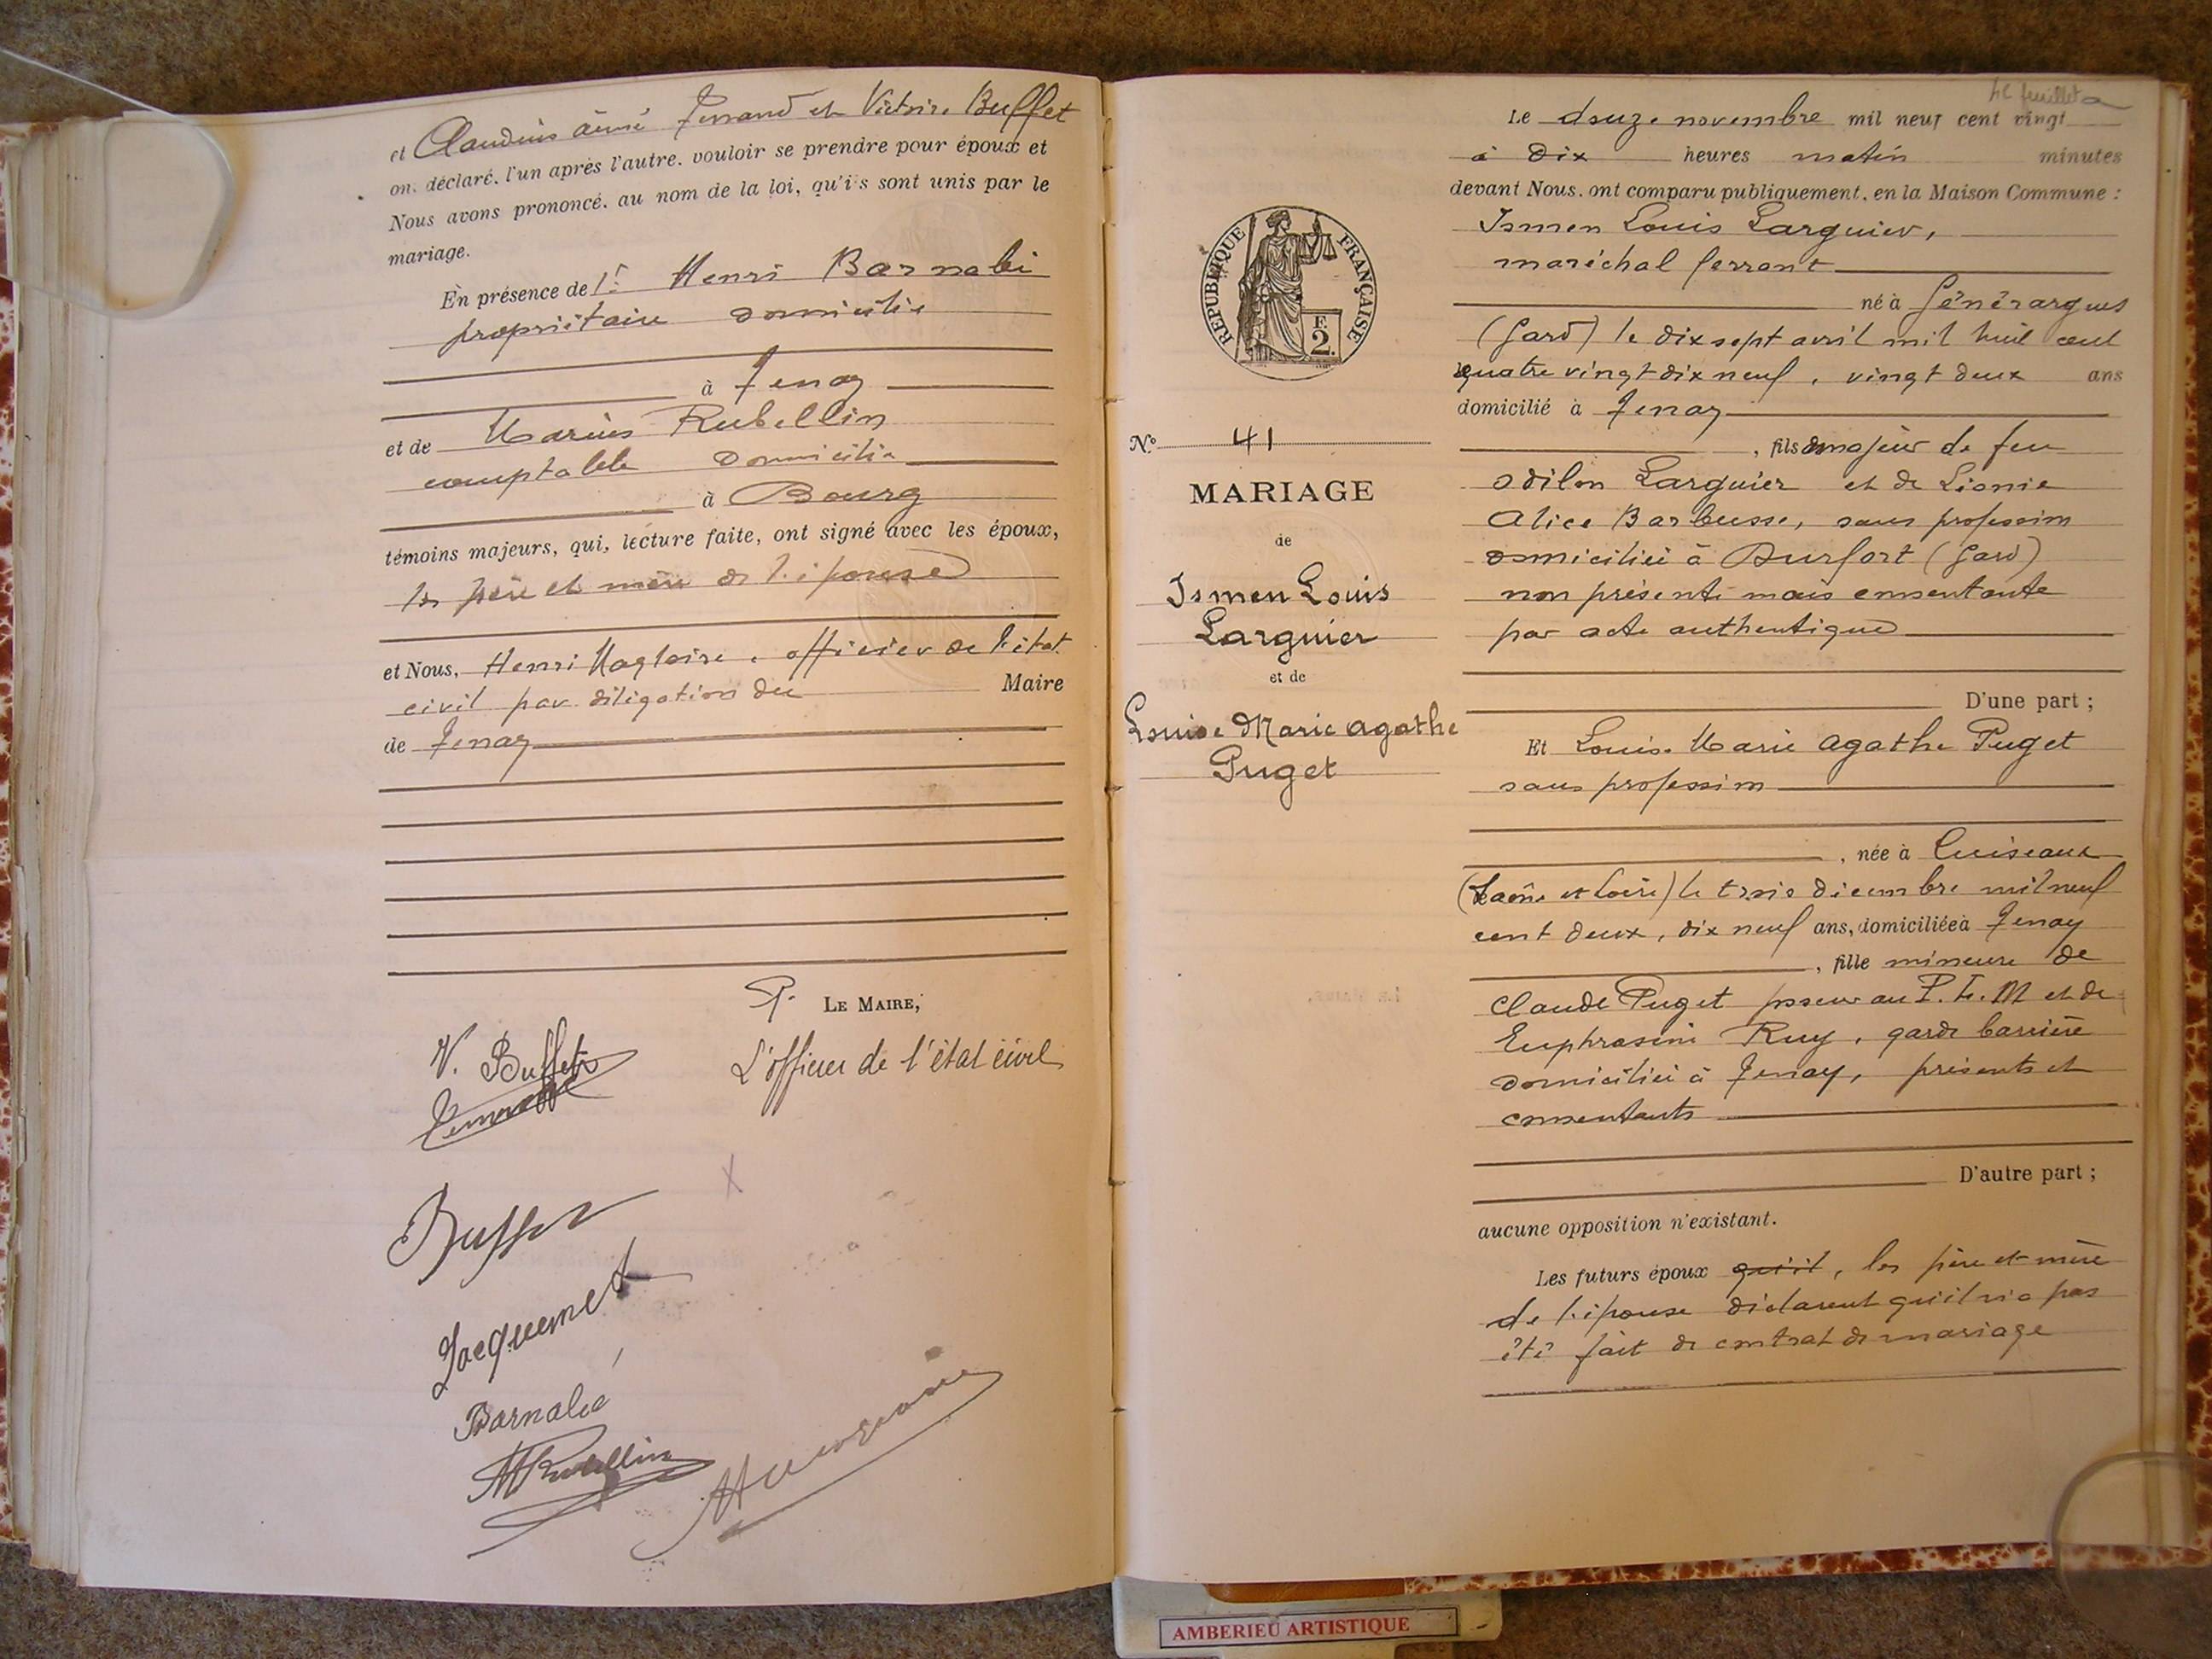 et Claudius aimé Ferrand et Victoire Buffet
on. déclaré. l'un après l'autre. vouloir se prendre pour époux et
Nous avons prononcé. au nom de la loi, qu'i's sont unis par le
mariage.
En présence de 1º Henri Barnabé
propriétaire domicilié
à Tenay
et de Marius Rubellin
comptable domicilié
à Bourg
témoins majeurs, qui, lecture faite, ont signé avec les époux,
les père et mère de l'épouse
et Nous, Henri Magloire, officier de l'état
civil par déligation du Maire
de Tenay
P. LE MAIRE,
L'officier de l'état civil
V. Buffet
Buffet
Jacquemet
Barnabé
MRubellin
4e feuillet
Le douze novembre mil neuf cent vingt
à dix heures matin minutes
devant Nous, ont comparu publiquement, en la Maison Commune :
Ismen Louis Larguier,
maréchal ferrant
né à Générargues
(Gard) le dix sept avril mil huit cent
quatre vingt dix neuf, vingt deux ans
domicilié à Tenay
, fils majeur de feu
Odilon Larguier et de Léonie
Alice Barbusse, sans profession
domiciliée à Durfort (Gard)
non présente mais consentante
par acte authentique
D'une part ;
Et Louise Marie Agathe Puget
sans profession
, née à Cuiseaux
(Saône et Loire) le trois décembre mil neuf
cent deux, dix neuf ans, domiciliée à Tenay
, fille mineure de
Claude Puget poseur au P. L. M et de
Euphrasine Ruy, garde barrière
domiciliés à Tenay, présents et
consentants
D'autre part ;
aucune opposition n'existant.
Les futurs époux qu'il, les père et mère
de l'épouse déclarent qu'il n'a pas
été fait de contrat de mariage
RÉPUBLIQUE FRANÇAISE
F.
2.
Nº 41
MARIAGE
de
Ismen Louis
Larguier
et de
Louise Marie Agathe
Puget
AMBERIEU ARTISTIQUE